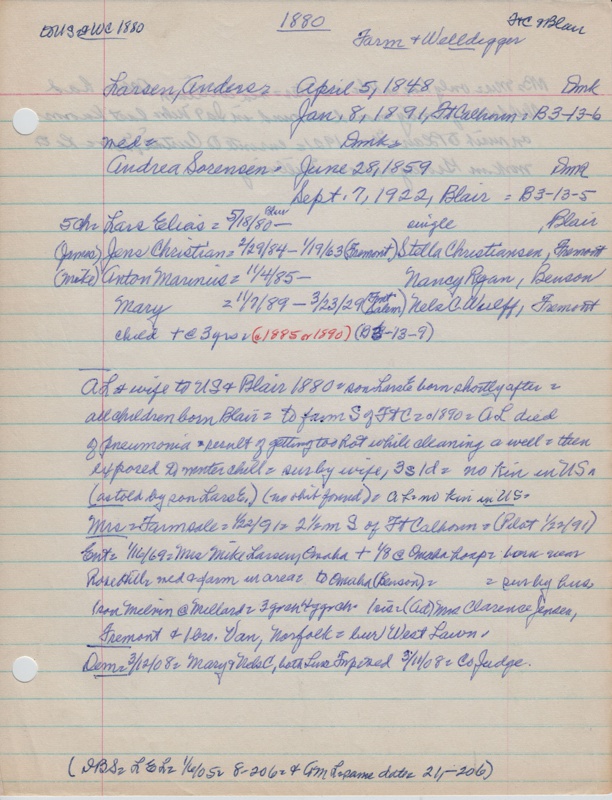 to US & WC 1880
1880
Ft C & Blair
Farm & Welldigger
Larsen, Anders = April 5, 1848 Dmk
Jan. 8, 1891, Ft Calhoun = B3-13-6
med = Dmk
Andrea Sorensen = June 28, 1859 Dmk
Sept. 7, 1922, Blair = B3-13-5
5 ch = Lars Elias = 5/18/80 Blair — single , Blair
(James) Jens Christian = 2/29/84 - 1/19/63 (Fremont) Stella Christiansen, Fremont
(Mike) Anton Marinius = 11/4/85 — Nancy Ryan, Benson
Mary = 11/7/89 - 3/23/29 Nels C Wulff, Fremont
child + @ 3 yrs = (c 1885 or 1890) (B3-13-9)
AL & wife to US & Blair 1880 = son Lars E born shortly after =
all children born Blair = to farm S of Ft C = c1890 = A L died
of pneumonia = result of getting too hot while cleaning a well = then
exposed to winter chill = sur by wife, 3s 1d = no kin in US =
(as told by son Lars E.) (no obit found) = A L = no kin in US =
Mrs = Farm sale = 1/22/91 = 2 1/2 m S of Ft Calhoun = (Pilot 1/22/91)
Ent = 1/16/69 = Mrs Mike Larsen, Omaha + 1/8 @ Omaha hosp = born near
Rose Hill = med & farm in area = to Omaha (Benson) = = sur by hus,
1 son Melvin @ Millard = 3 grch 4 ggrch 1 sis = (Ad) Mrs Clarence Jensen,
Fremont & 1 bro. Van, Norfolk = bur West Lawn.
Dem = 3/12/08 = Mary & Nels C, both Luse 3/11/08 = Co Judge.
( DBS = L E L = 1/6/05 = 8-206 = & A M L = same date = 21,-206)